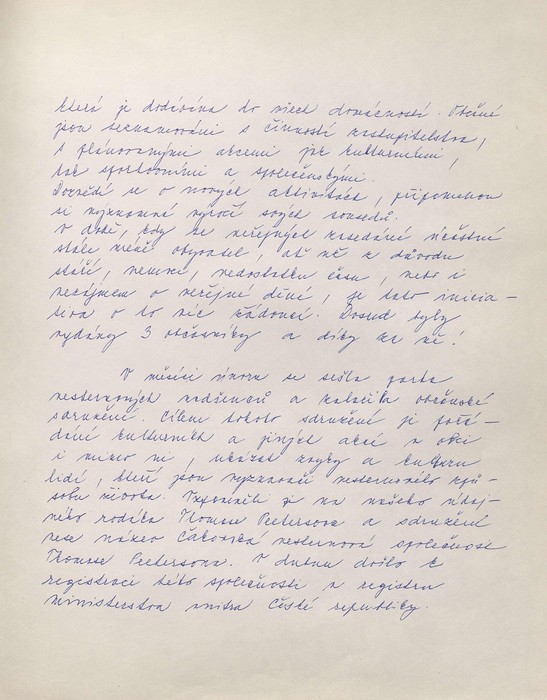 která je dodávána do všech domácností. Občané
jsou seznamováni s činností zastupitelstva,
s plánovanými akcemi jak kulturními,
tak sportovními a společenskými.
Dozvědí se o nových aktivitách, připomenou
si významná výročí svých sousedů.
V době, kdy se veřejných zasedání účastní
stále méně obyvatel, ať už z důvodu
stáří, nemoci, nedostatku času, nebo i
nezájmem o veřejné dění, je tato inicia-
tiva o to více žádoucí. Dosud byly
vydány 3 občasníky a díky za ně!
V měsíci únoru se sešla parta
westernových nadšenců a založila občanské
sdružení. Cílem tohoto sdružení je pořá-
dání kulturních a jiných akcí v obci
i mimo ni, ukázat zvyky a kulturu
lidí, kteří jsou vyznavači westernového způ-
sobu života. Vzpomněli si na našeho údaj-
ného rodáka Thomase Peetersova a sdružení
nese název Čakovská westernová společnost
Thomase Peetersova. V dubnu došlo k
registraci této společnosti v registru
ministerstva vnitra České republiky.